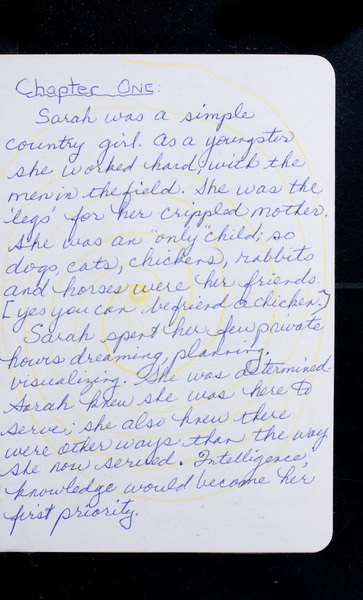 Chapter One:
Sarah was a simple
country girl. As a youngster
she worked hard, with the
men in the field. She was the
"legs" for her crippled mother.
She was an "only" child; so
dogs, cats, chickens, rabbits
and horses were her friends.
[yes you can befriend a chicken.]
Sarah spent her few private
hours dreaming, planning,
visualizing. She was determined.
Sarah knew she was here to
serve; she also knew there
were other ways than the way
she now served. Intelligence,
knowledge would become her
first priority.